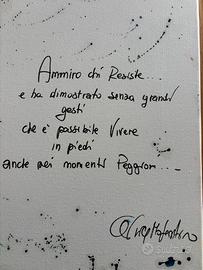 Ammiro chi Resiste...
e ha dimostrato senza grandi
gesti
che e' possibile Vivere
in piedi
anche nei momenti Peggiori...